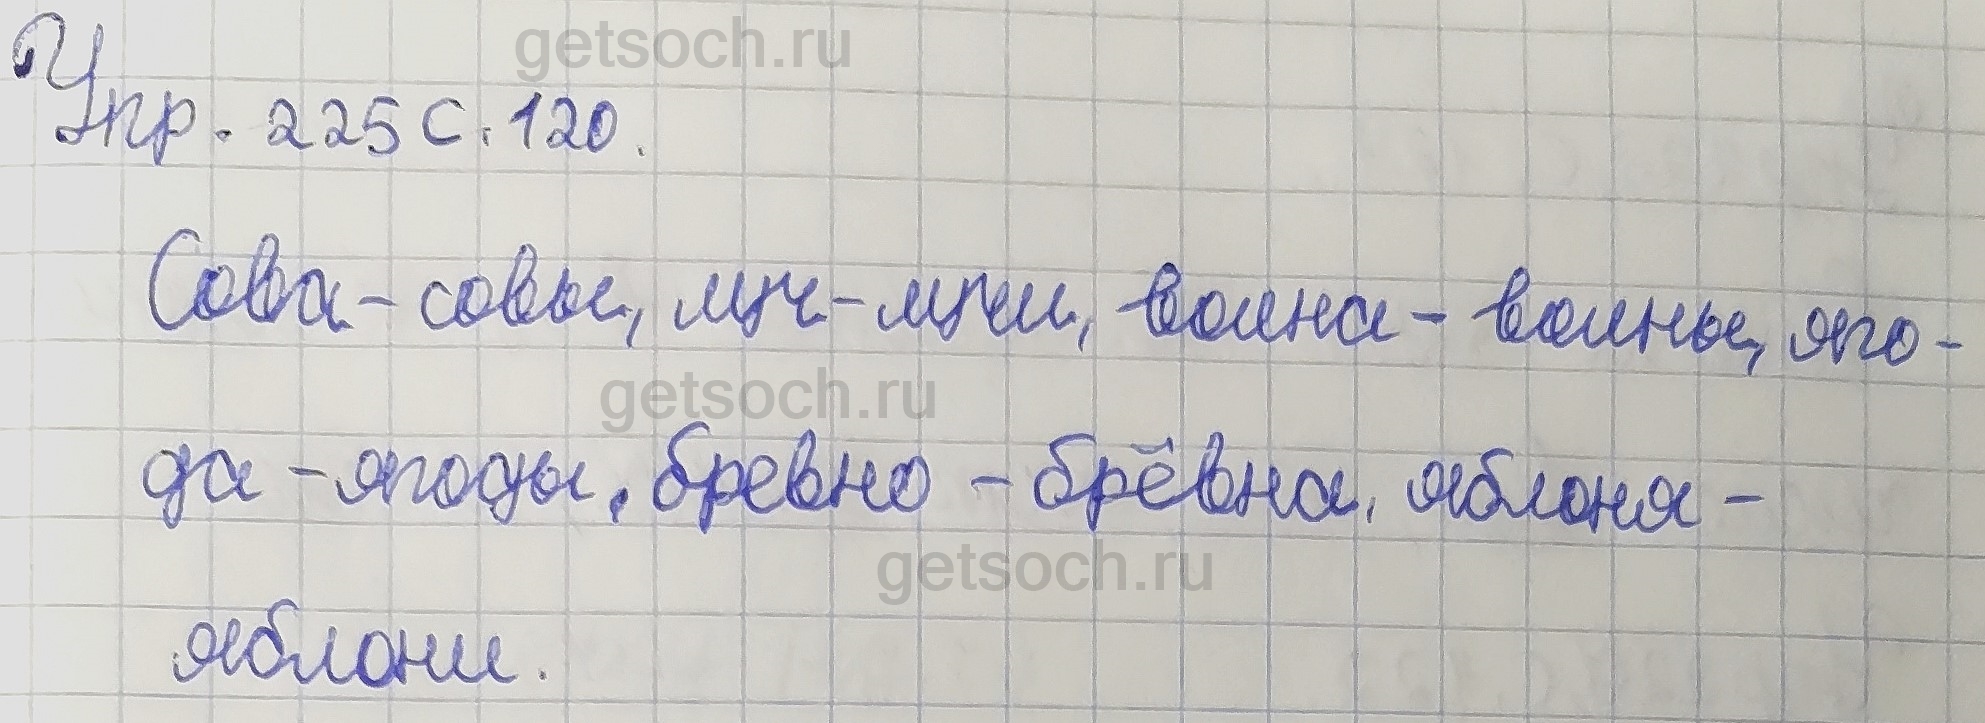 getsoch.ru
Упр. 225 с. 120.
Сова – совы, луч – лучи, волна – волны, яго-
getsoch.ru
да – ягоды, бревно – брёвна, яблоня –
getsoch.ru
яблони.